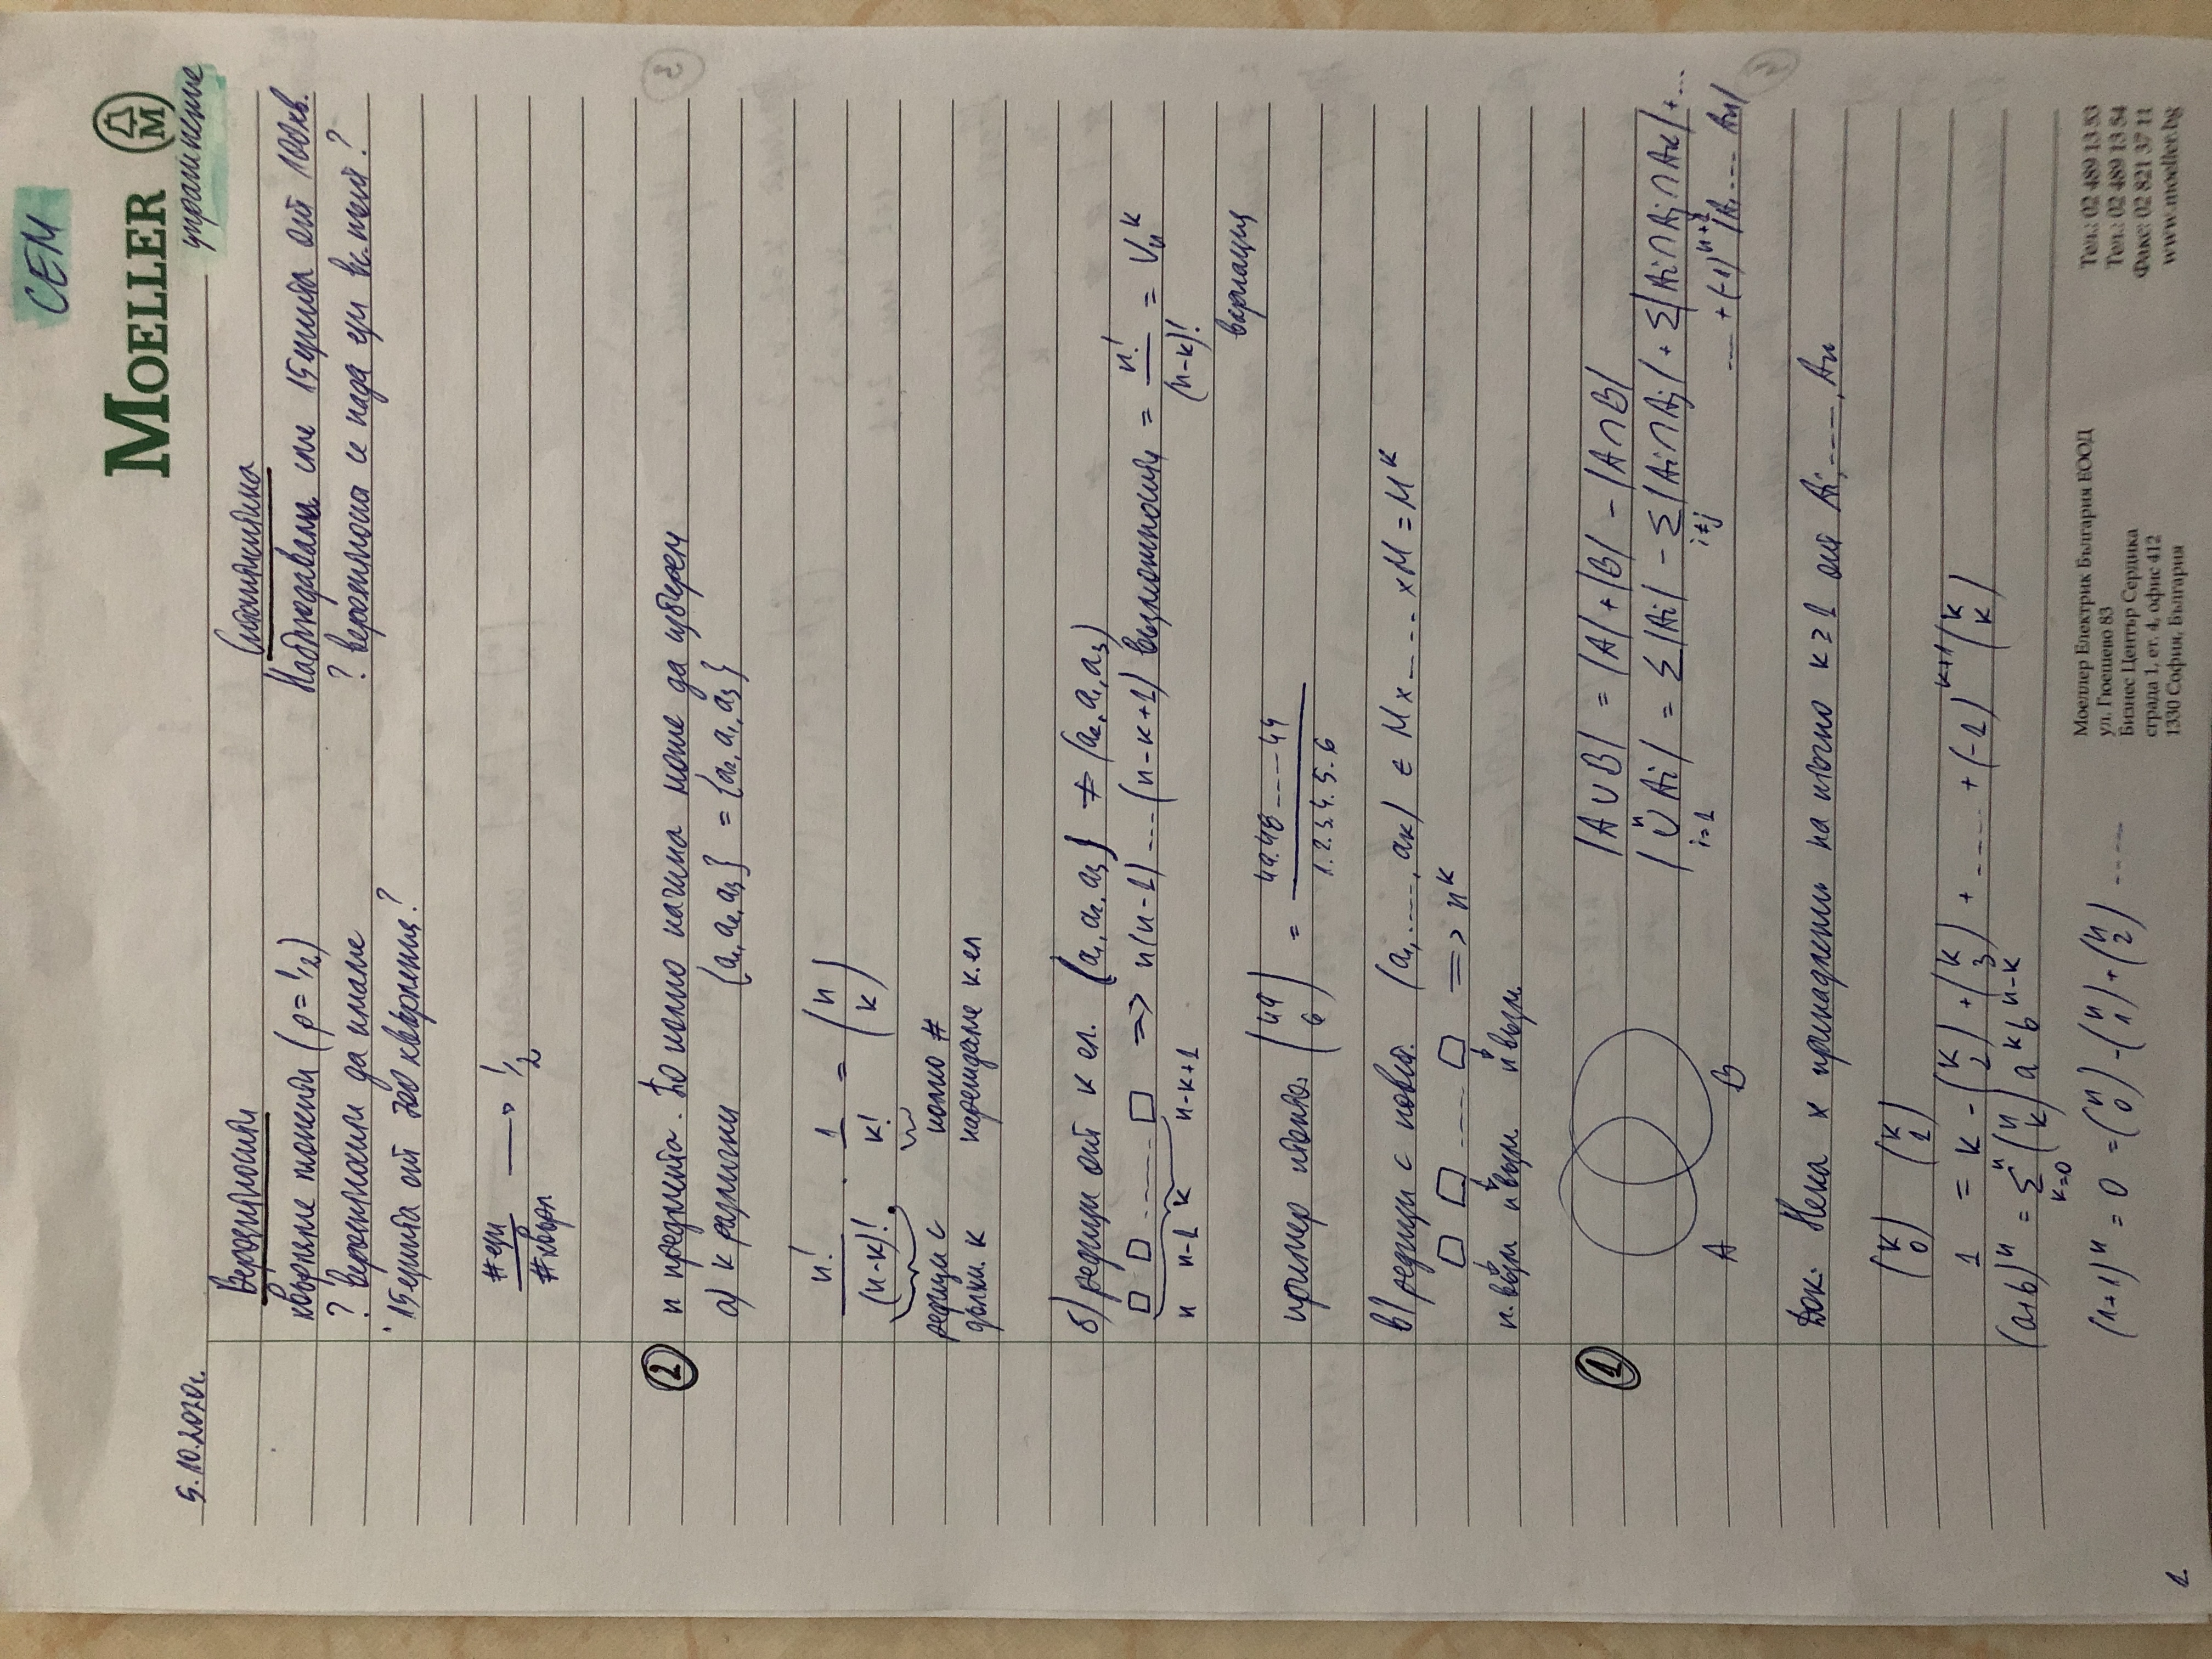 СЕМ
MOELLER
M
упражнение
5.10.2020г.
Вероятности
хвърляме монети (p = 1/2)
? вероятности да имаме
15 езита от 100 хвърляния?
Статистика
Наблюдавали сме 15 езита от 100 хв.
? вероятност се пада ези вс. път ?
#ези / #хвърл → 1/2
② n предмета. По колко начина може да изберем
а) k различни {a₁, a₂, a₃} = {a₂, a₁, a₃}
n!/(n-k)! · 1/k! = (n k)
редици с колко #
дълж. k нареждаме k. ел
б) редици от k ел. (a₁, a₂, a₃) ≠ (a₂, a₁, a₃)
□ □ ..... □ => n(n-1) ... (n-k+1) възможности = n!/(n-k)! = Vₙᵏ
n n-1 k n-k+1
вариация
пример тото: (49 6) = 49.48.....44 / 1.2.3.4.5.6
в) редици с повт. (a₁, ....., aₖ) ∈ M x ..... x M = Mᵏ
□ □ ..... □ => nᵏ
n. възм n възм. n възм.
① |A ∪ B| = |A| + |B| - |A ∩ B|
|⋃ Ai| = Σ|Ai| - Σ|Ai ∩ Aj| + Σ|Ai ∩ Aj ∩ Ak| + ...
i=1 n i≠j
.... + (-1)ⁿ⁺¹ |A₁ .... Aₙ|
A B
Док. Нека x принадлежи на точно k ≥ 1 от Ai, ....., Aₙ
(k 0) (k 1)
1 = k - (k 2) + (k 3) + ..... + (-1)ᵏ⁺¹ (k k)
(a+b)ⁿ = Σ (n k) aᵏ bⁿ⁻ᵏ
k=0 n
(1+1)ⁿ = 0 = (n 0) - (n 1) + (n 2) .....
1.
Моеллер Електрик България ЕООД
ул. Гюешево 83
Бизнес Център Сердика
сграда 1, ет. 4, офис 412
1330 София, България
Тел.: 02 489 13 53
Тел.: 02 489 13 54
Факс: 02 821 37 11
www.moeller.bg